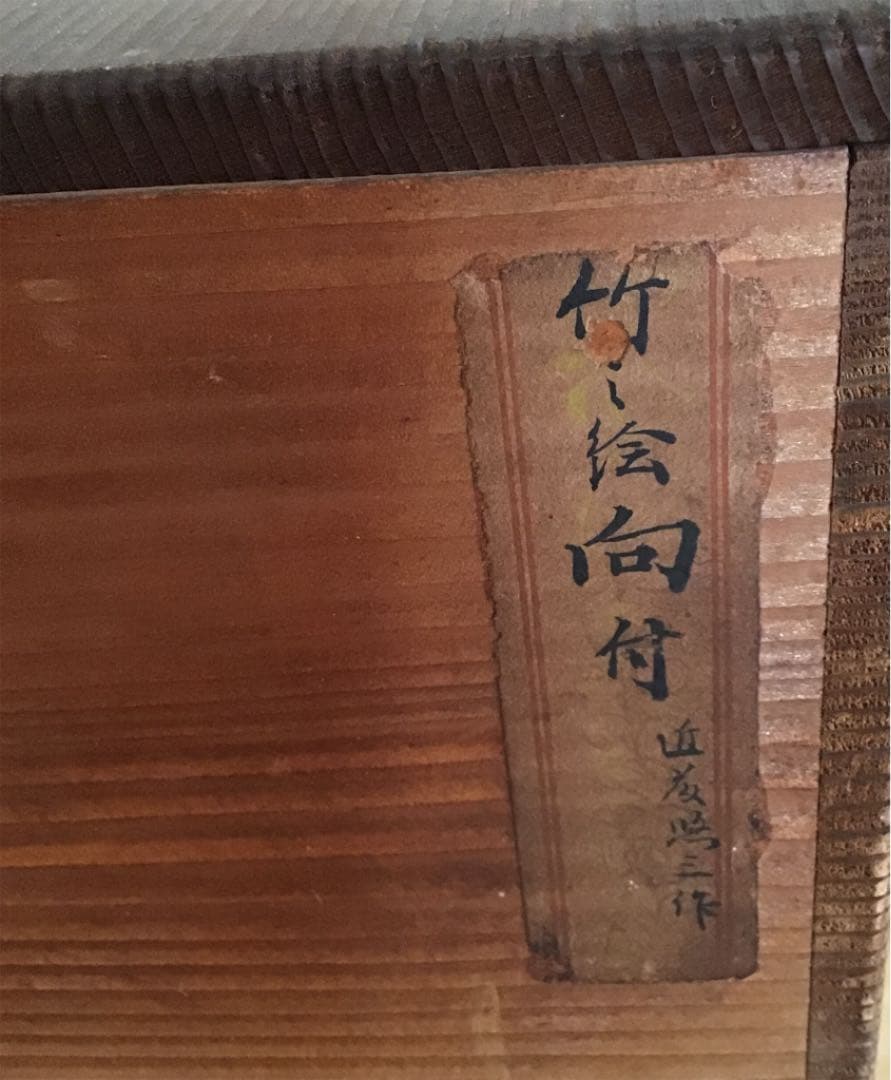 竹之絵向付
近藤照三作